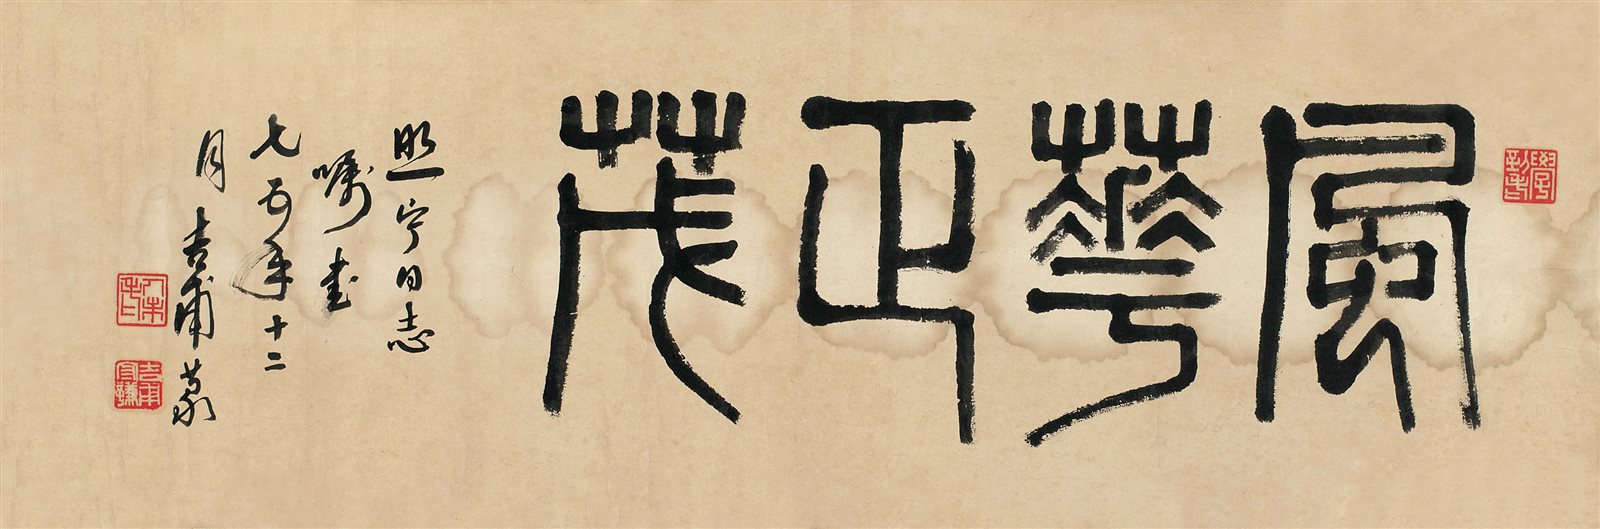 風華正茂
照宁同志
嘱書
七五年十二
月 吉甫篆